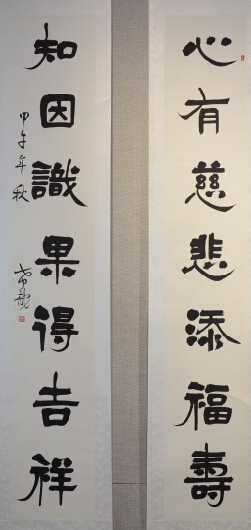 心有慈悲添福壽
知因識果得吉祥
甲午年秋